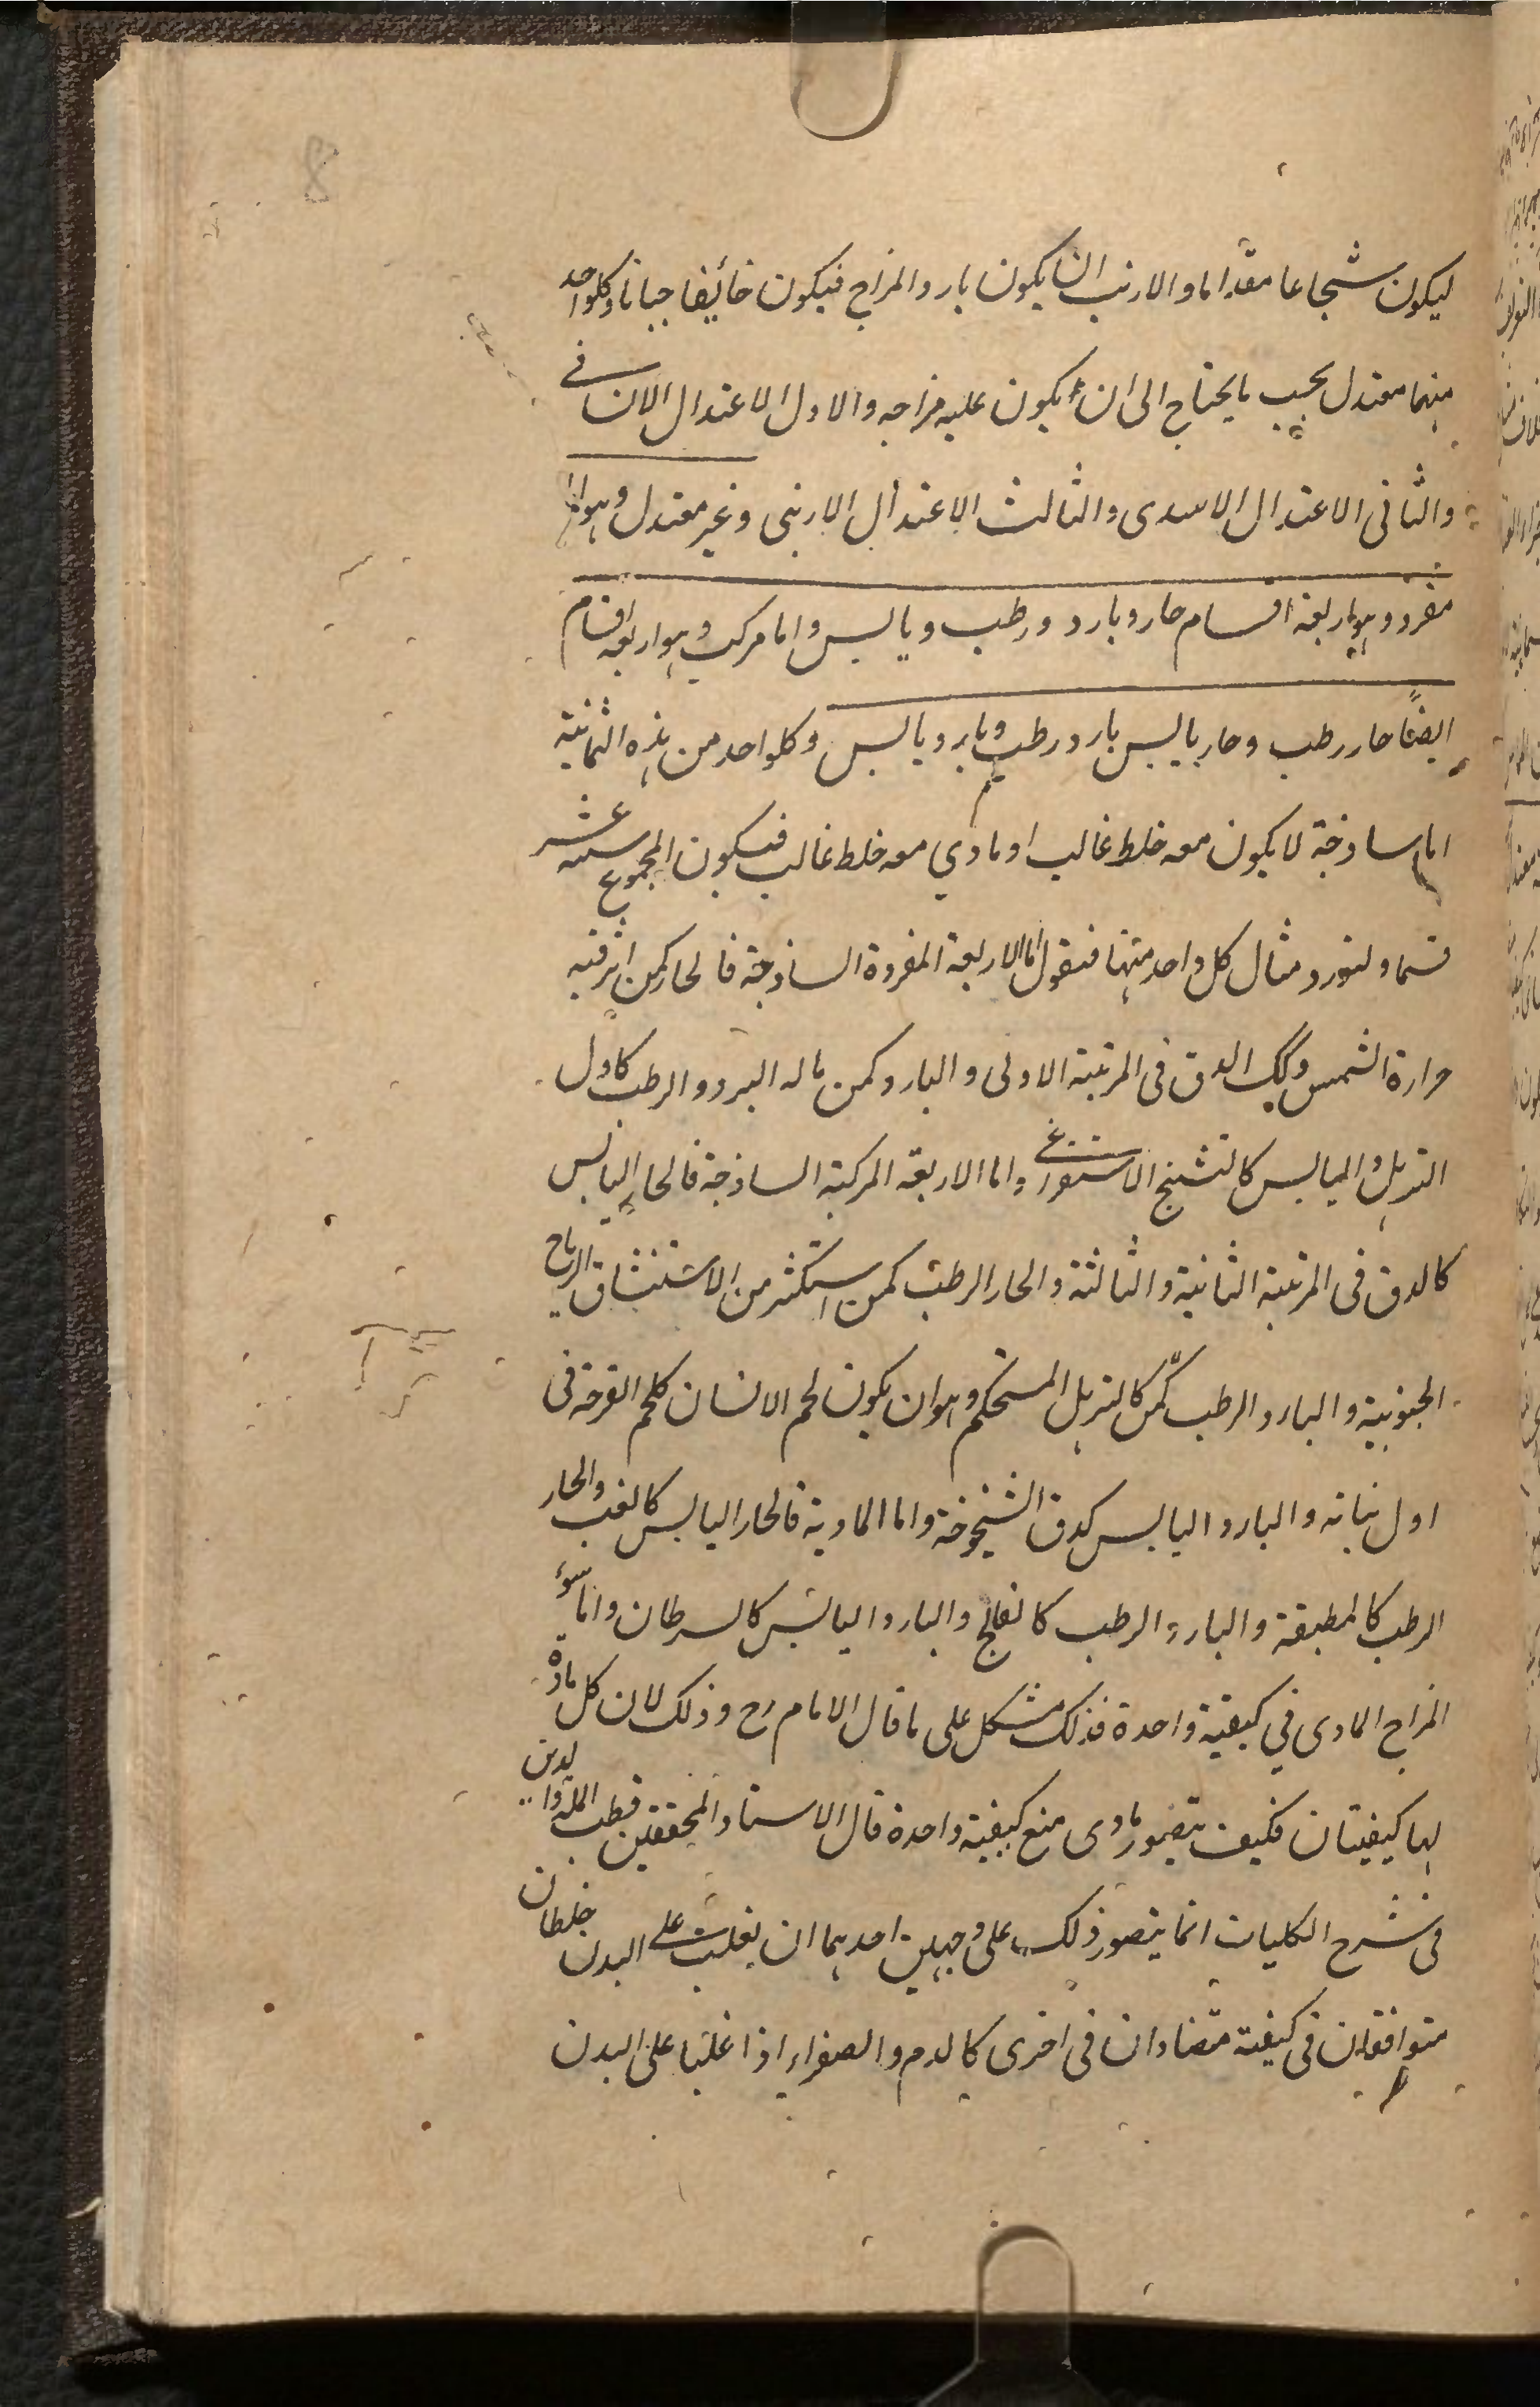 8
ليكون شجاعا مقداما والارنب ان يكون بارد المزاج فيكون خائفا جبانا وكلواحد
منهما معتدل بحسب ما يحتاج الى ان يكون عليه مزاجه والاول الاعتدال الانسانى
والثانى الاعتدال الاسدى والثالث الاعتدال الارنبى وغير معتدل وهو اما
مفرد وهو اربعة اقسام حار وبارد ورطب ويابس واما مركب وهو اربعة اقسام
ايضًا حار رطب وحار يابس بارد رطب وبارد يابس وكلواحد من هذه الثمانية
اما ساذجة لا يكون معه خلط غالب او مادي معه خلط غالب فيكون المجموع ستة عشر
قسما ولنورد مثال كل واحد منها فنقول اما الاربعة المفردة الساذجة فالحار كمن اثر فيه
حرارة الشمس وكالدق فى المرتبة الاولى والبارد كمن ناله البرد والرطب كاول
الترهل واليابس كالتشنج الاستفراغى واما الاربعة المركبة الساذجة فالحار اليابس
كالدق فى المرتبة الثانية والثالثة والحار الرطب كمن استكثر من الاستنشاق الرياح
الجنوبية والبارد الرطب كمن كالترهل المستحكم وهو ان يكون لحم الانسان كلحم القرحة فى
اول نباته والبارد اليابس كدق الشيخوخة واما المادية فالحار اليابس كالغب والحار
الرطب كالمطبقة والبارد الرطب كالفالج والبارد اليابس كالسرطان واما سوء
المزاج المادى في كيفية واحدة فذلك مشكل على ما قال الامام رح وذلك لان كل مادة
لها كيفيتان فكيف يتصور مادى مع كيفية واحدة قال الاستاد المحققين قطب الملة والدين
فى شرح الكليات انما يتصور ذلك على وجهين احدهما ان يغلب على البدن خلطان
متوافقان فى كيفية متضادان فى اخرى كالدم والصفراء اذا غلبا على البدن